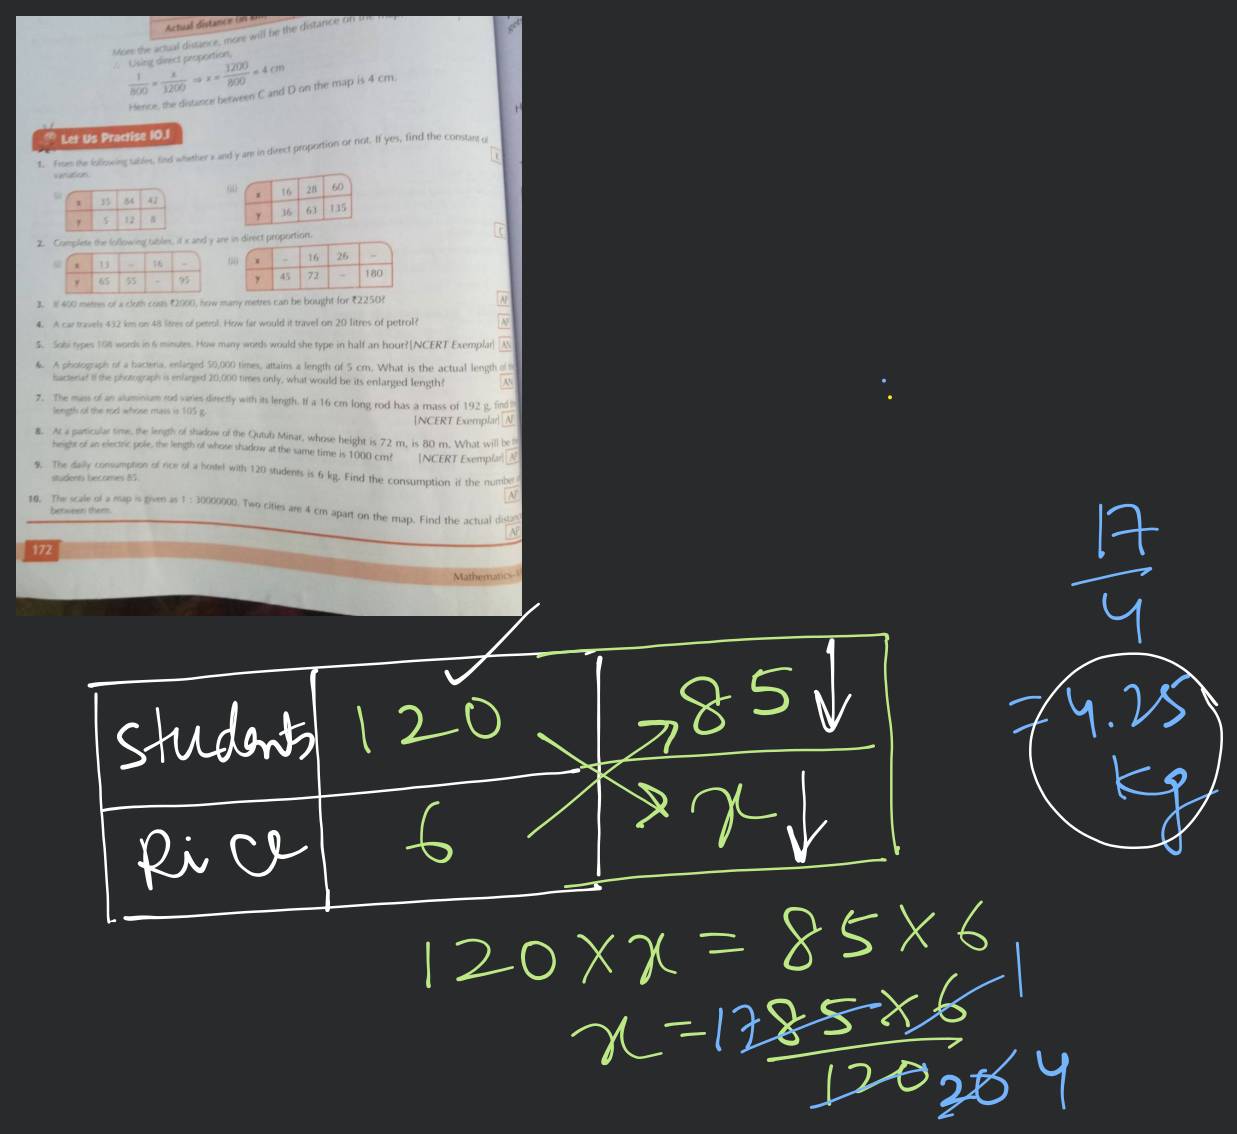 Actual distance (in km)
More the actual distance, more will be the distance on the map.
∴ Using direct proportion,
1/800 = x/3200 ⇒ x = 3200/800 = 4 cm
Hence, the distance between C and D on the map is 4 cm.
Let Us Practise 10.1
1. From the following tables, find whether x and y are in direct proportion or not. If yes, find the constant of
variation.
(i) x 35 84 42
y 5 12 8
(ii) x 16 28 60
y 36 63 135
2. Complete the following tables, if x and y are in direct proportion.
(i) x 13 – 16 –
y 65 55 – 95
(ii) x – 16 26 –
y 45 72 – 180
3. If 400 metres of a cloth costs ₹2000, how many metres can be bought for ₹2250? AP
4. A car travels 432 km on 48 litres of petrol. How far would it travel on 20 litres of petrol? AP
5. Sobi types 108 words in 6 minutes. How many words would she type in half an hour? [NCERT Exemplar] AN
6. A photograph of a bacteria, enlarged 50,000 times, attains a length of 5 cm. What is the actual length of
bacteria? If the photograph is enlarged 20,000 times only, what would be its enlarged length? AN
7. The mass of an aluminium rod varies directly with its length. If a 16 cm long rod has a mass of 192 g, find
length of the rod whose mass is 105 g. [NCERT Exemplar] AP
8. At a particular time, the length of shadow of the Qutub Minar, whose height is 72 m, is 80 m. What will be
height of an electric pole, the length of whose shadow at the same time is 1000 cm? [NCERT Exemplar] AP
9. The daily consumption of rice of a hostel with 120 students is 6 kg. Find the consumption if the number
students becomes 85. AP
10. The scale of a map is given as 1 : 30000000. Two cities are 4 cm apart on the map. Find the actual
between them. AP
172
Mathematics
17
4
= 4.25
kg
Students 120 85
Rice 6 x
120 × x = 85 × 6
x = 17 85 × 6 1
120 20 4